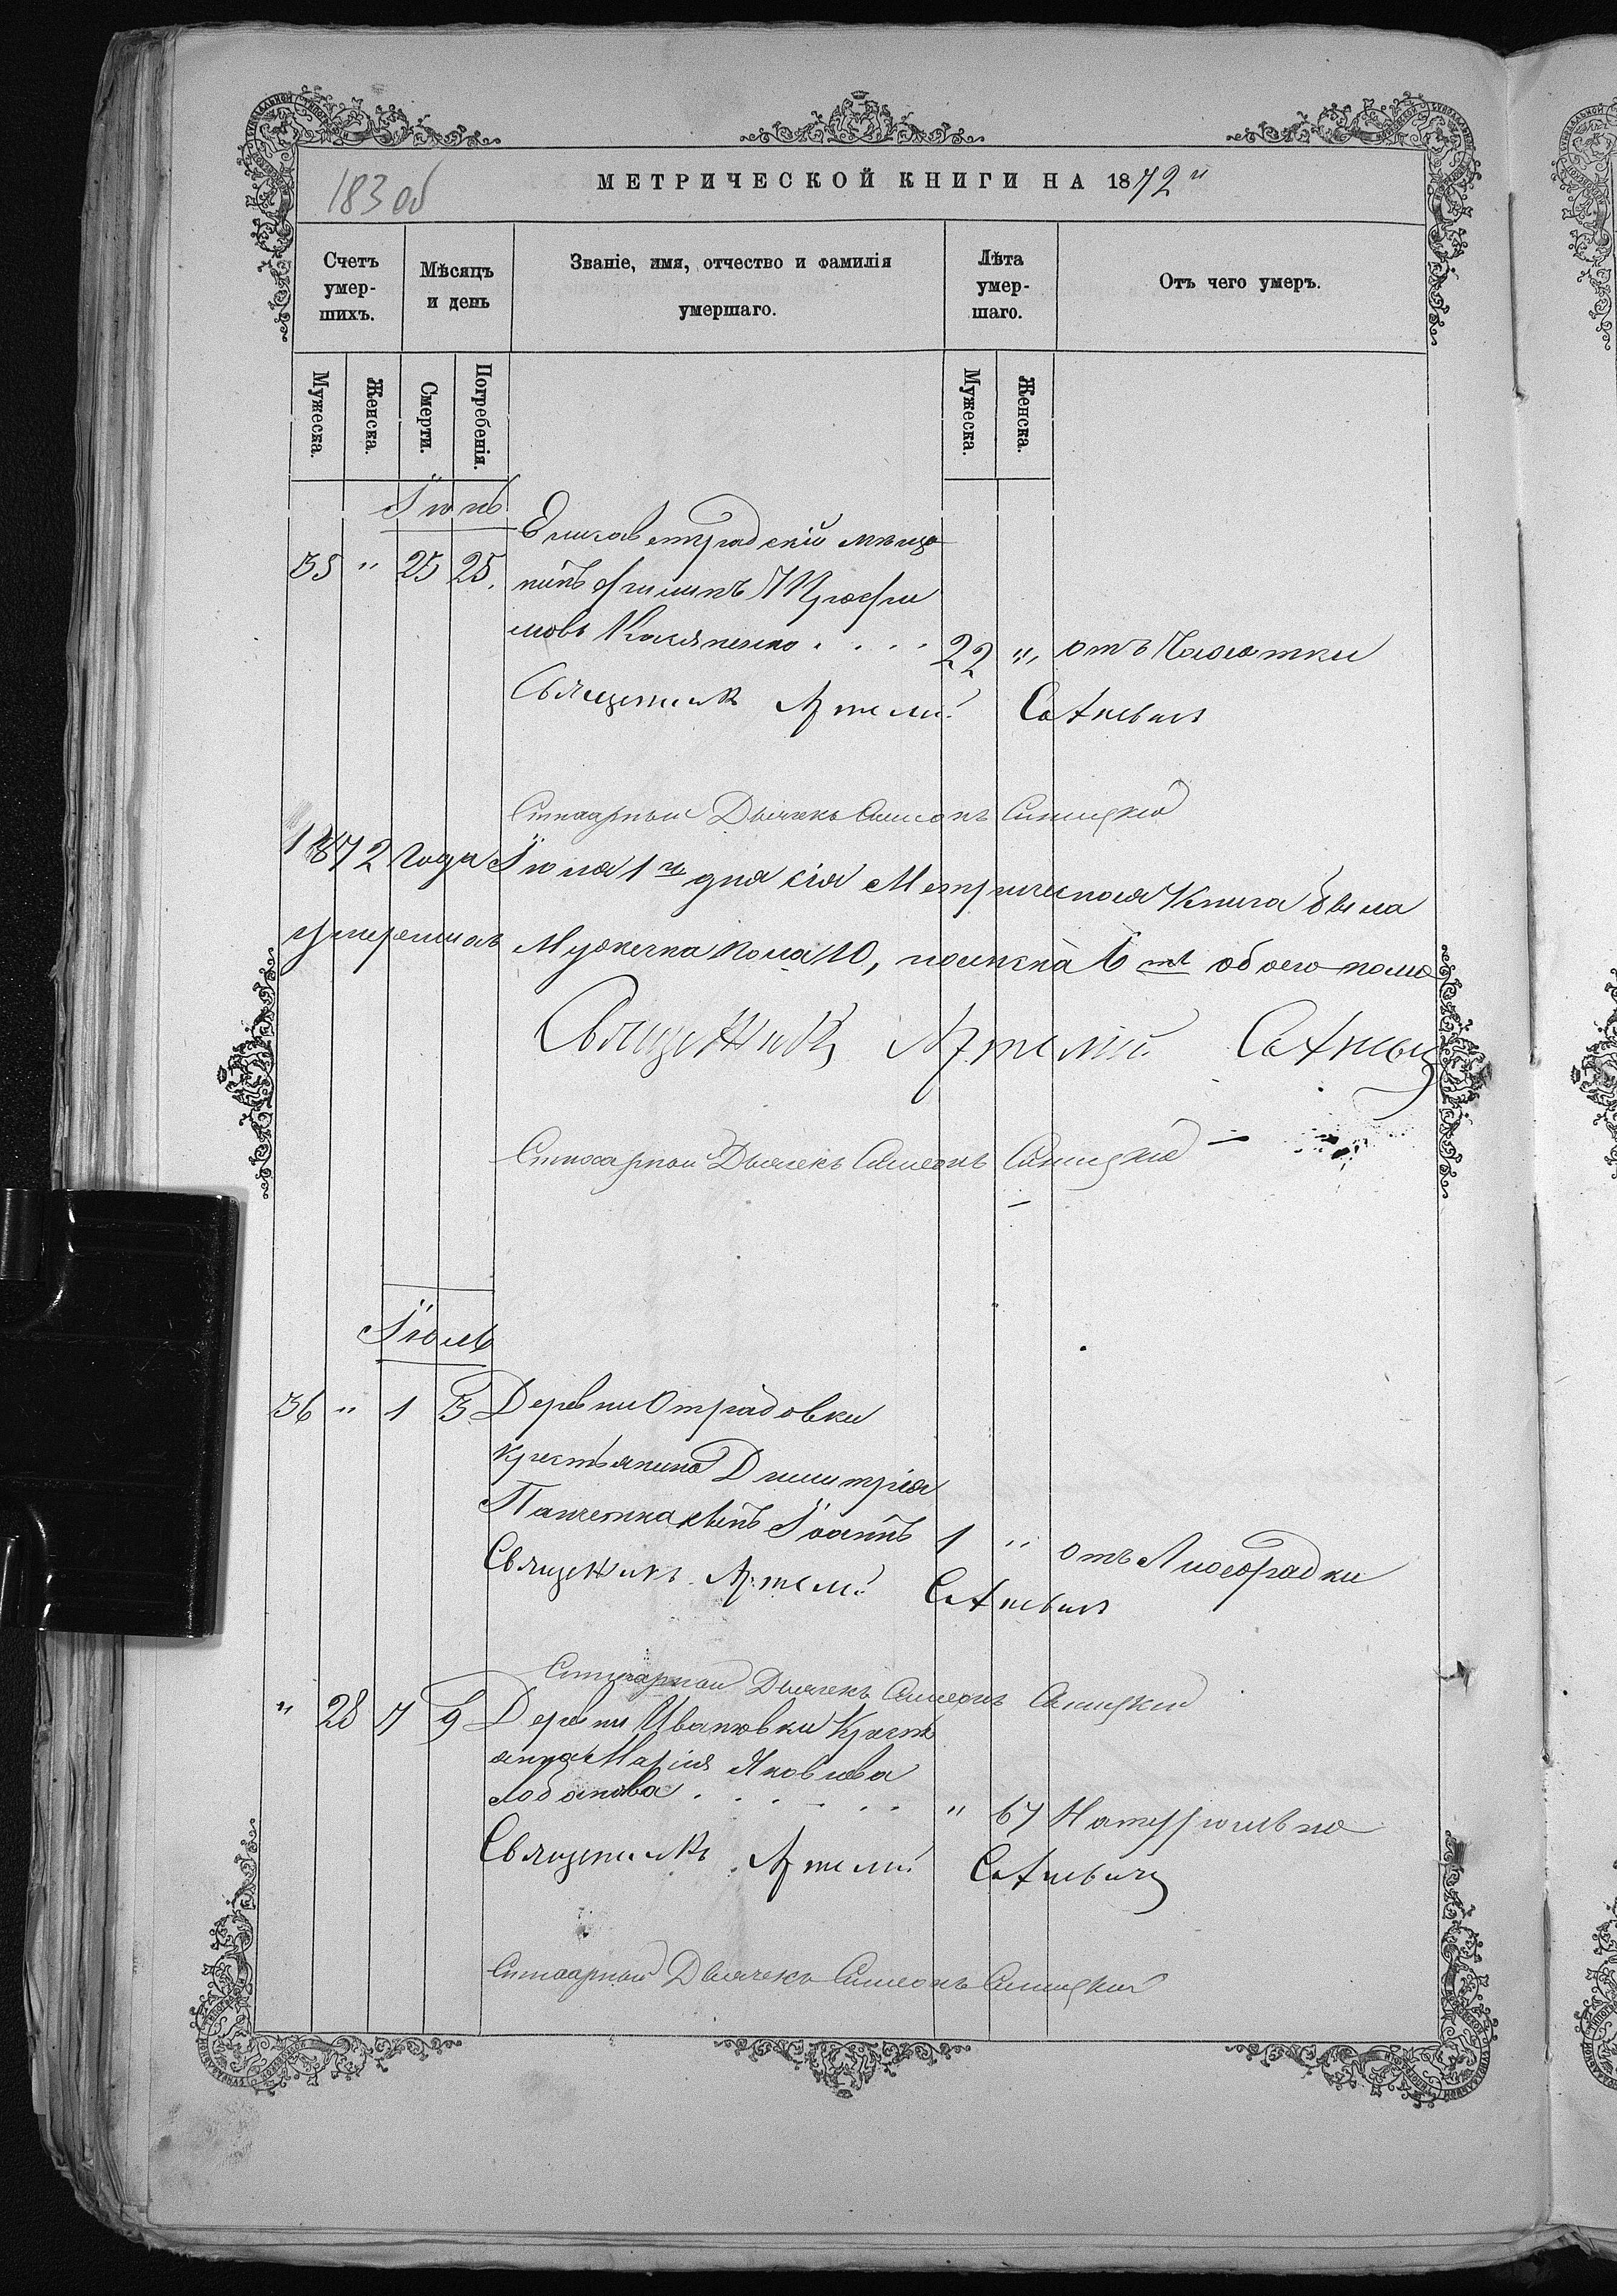 183 об
МЕТРИЧЕСКОЙ КНИГИ НА 1872
Счетъ умер-шихъ.
Мѣсяцъ и день
Званіе, имя, отчество и фамилія умершаго.
Лѣта умер-шаго.
Отъ чего умеръ.
Мужеска.
Женска.
Смерти.
Погребенія.
Мужеска.
Женска.
Іюнь
Елисаветградскій мѣща
35 " 25 25. нинъ Филипъ Трофи
мовъ . . . . 22 " отъ Чахотки
Священникъ Артемій
Стихарный Дьячекъ Симеонъ
1872 года Іюля 1 дня сія Метрическая Книга была
Мужеска пола 10, женска 6 обоего пола
Священникъ Артемій
Стихарный Дьячекъ Симеонъ
Іюль
36 " 1 3 Деревни Отрадовки
крестьянина Димитрія
сынъ Іоаннъ 1 " отъ Лихорадки
Священникъ Артемій
Стихарный Дьячекъ Симеонъ
" 28 7 9 Деревни Ивановки Крестъ
янка Марія Яковлева
Лобанова . . . . . . " 67 Натурально
Священникъ Артемій
Стихарный Дьячекъ Симеонъ